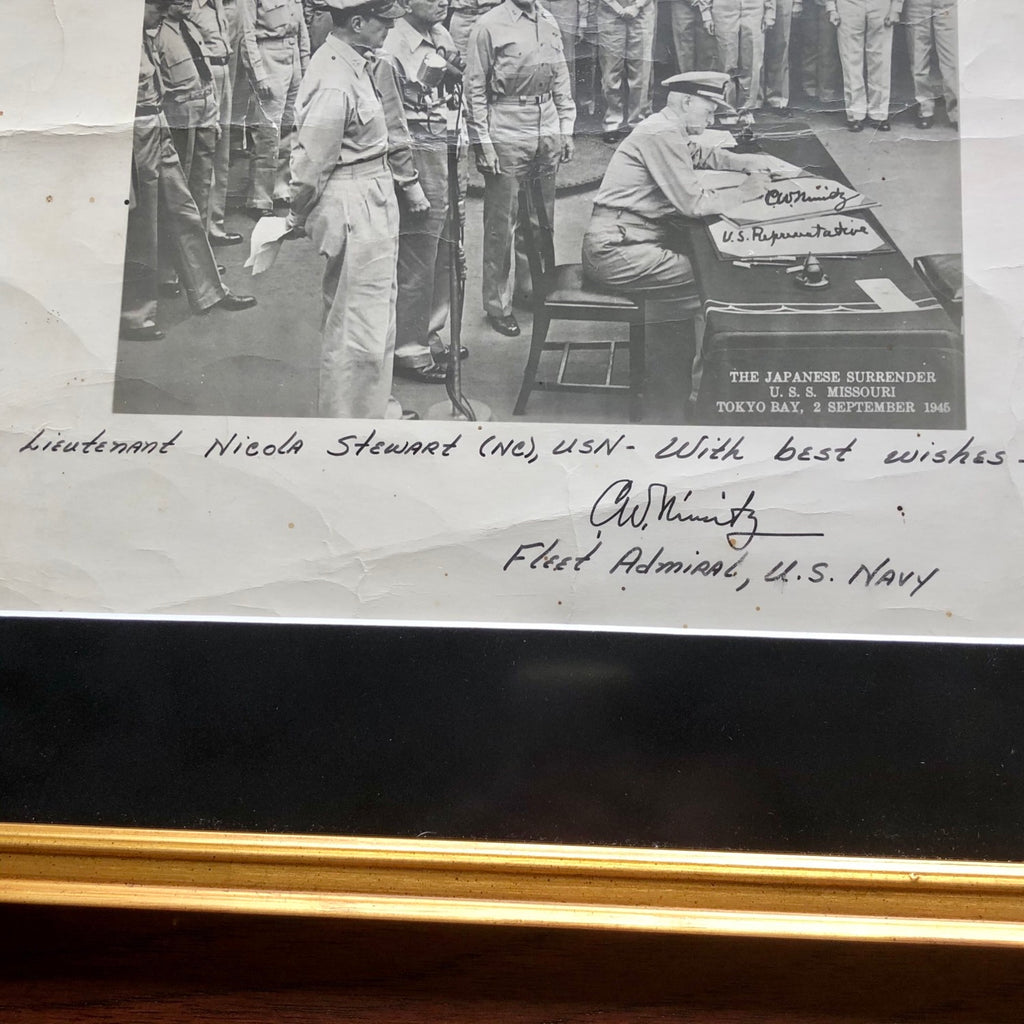 C.W. Nimitz
U.S. Representative
THE JAPANESE SURRENDER
U. S. S. MISSOURI
TOKYO BAY, 2 SEPTEMBER 1945
Lieutenant Nicola Stewart (NC), USN - With best wishes -
C.W. Nimitz
Fleet Admiral, U.S. Navy